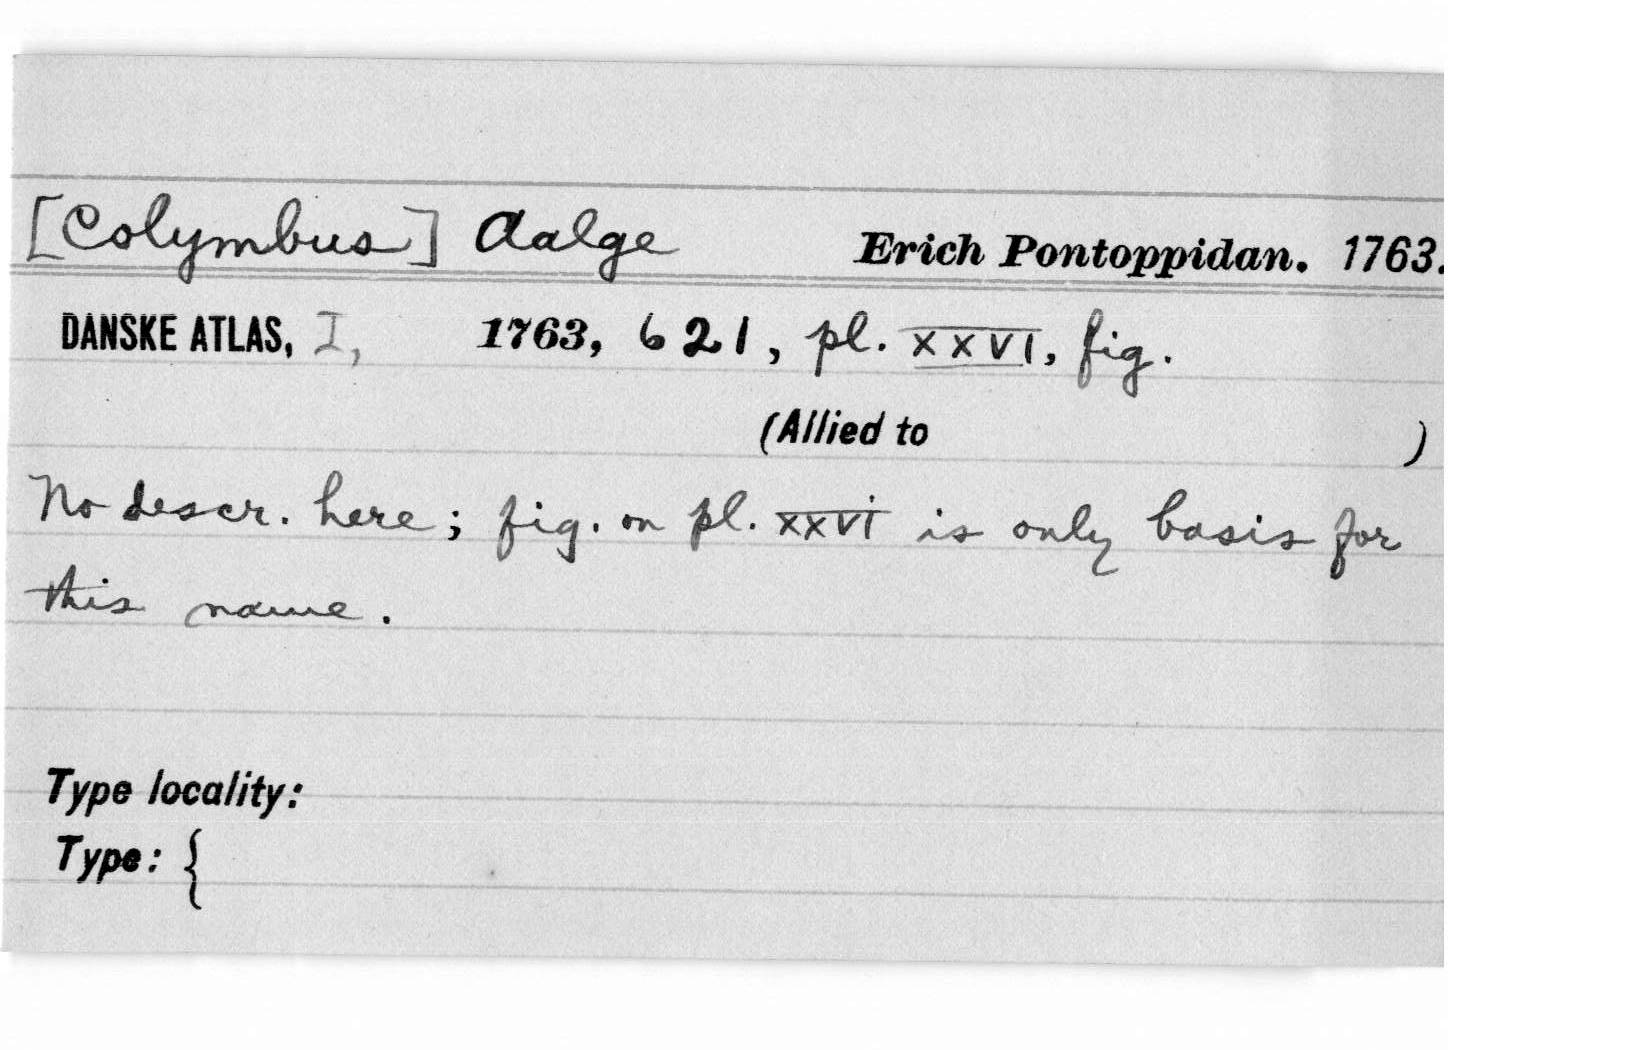 [Colymbus] Aalge Erich Pontoppidan. 1763.
DANSKE ATLAS, I, 1763, 621, pl. XXVI, fig.
(Allied to )
No descr. here; fig. on pl. XXVI is only basis for
this name.
Type locality:
Type: {